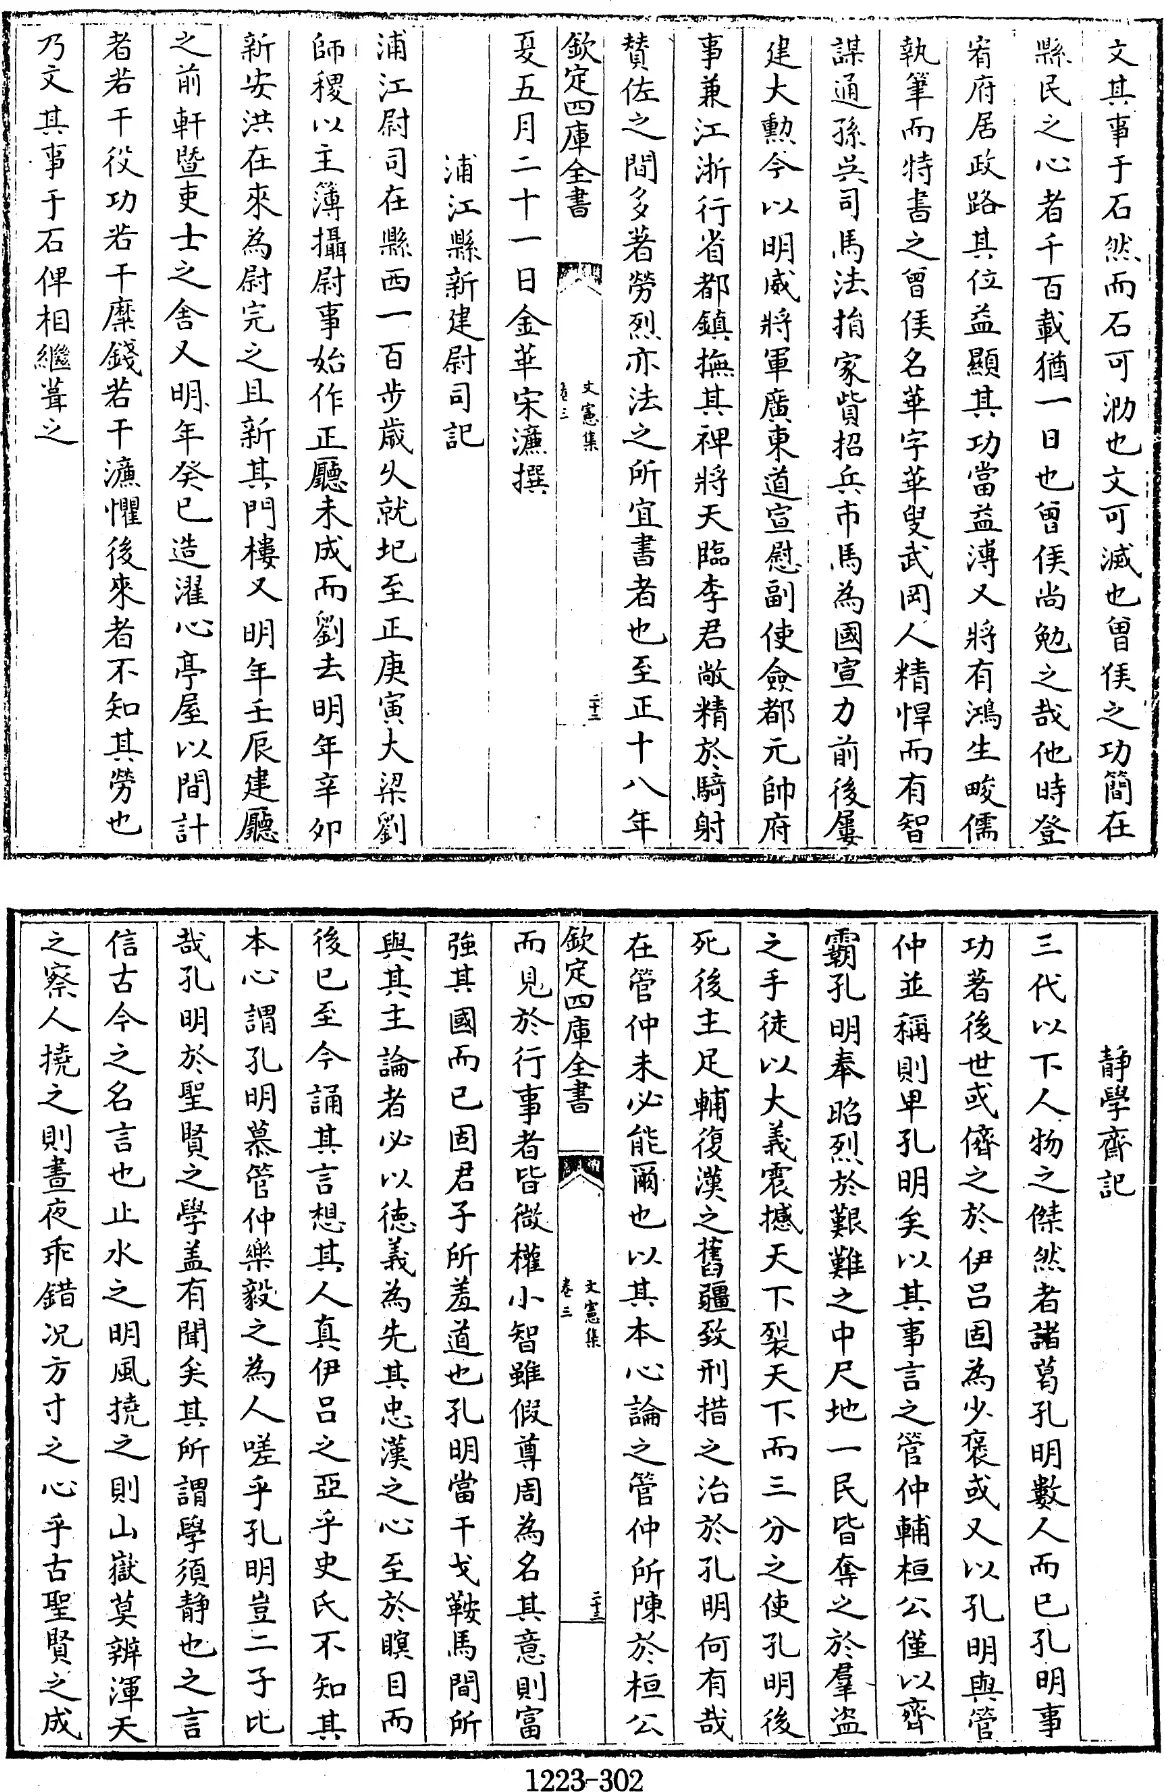 文其事于石然而石可泐也文可滅也曾侯之功簡在
縣民之心者千百載猶一日也曾侯尚勉之哉他時登
宥府居政路其位益顯其功當益溥又將有鴻生畯儒
執筆而特書之曾侯名華字華叟武岡人精悍而有智
謀通孫吳司馬法捐家貲招兵市馬為國宣力前後屢
建大勲今以明威將軍廣東道宣慰副使僉都元帥府
事兼江浙行省都鎮撫其裨將天臨李君敞精於騎射
賛佐之間多著勞烈亦法之所宜書者也至正十八年
欽定四庫全書
文憲集
卷三
二十三
夏五月二十一日金華宋濂撰
浦江縣新建尉司記
浦江尉司在縣西一百步歲久就圯至正庚寅大梁劉
師稷以主簿攝尉事始作正廳未成而劉去明年辛夘
新安洪在來為尉完之且新其門樓又明年壬辰建廳
之前軒暨吏士之舍又明年癸巳造濯心亭屋以間計
者若干役功若干糜錢若干濂懼後來者不知其勞也
乃文其事于石俾相繼葺之
靜學齋記
三代以下人物之傑然者諸葛孔明數人而已孔明事
功著後世或儕之於伊吕固為少褒或又以孔明與管
仲並稱則卑孔明矣以其事言之管仲輔桓公僅以齊
霸孔明奉昭烈於艱難之中尺地一民皆奪之於羣盗
之手徒以大義震撼天下裂天下而三分之使孔明後
死後主足輔復漢之舊疆致刑措之治於孔明何有哉
在管仲未必能爾也以其本心論之管仲所陳於桓公
欽定四庫全書
文憲集
卷三
二十三
而見於行事者皆微權小智雖假尊周為名其意則富
強其國而已固君子所羞道也孔明當干戈鞍馬間所
與其主論者必以徳義為先其忠漢之心至於瞑目而
後已至今誦其言想其人真伊吕之亞乎史氏不知其
本心謂孔明慕管仲樂毅之為人嗟乎孔明豈二子比
哉孔明於聖賢之學盖有聞矣其所謂學須靜也之言
信古今之名言也止水之明風撓之則山嶽莫辨渾天
之察人撓之則晝夜乖錯况方寸之心乎古聖賢之成
1223-302